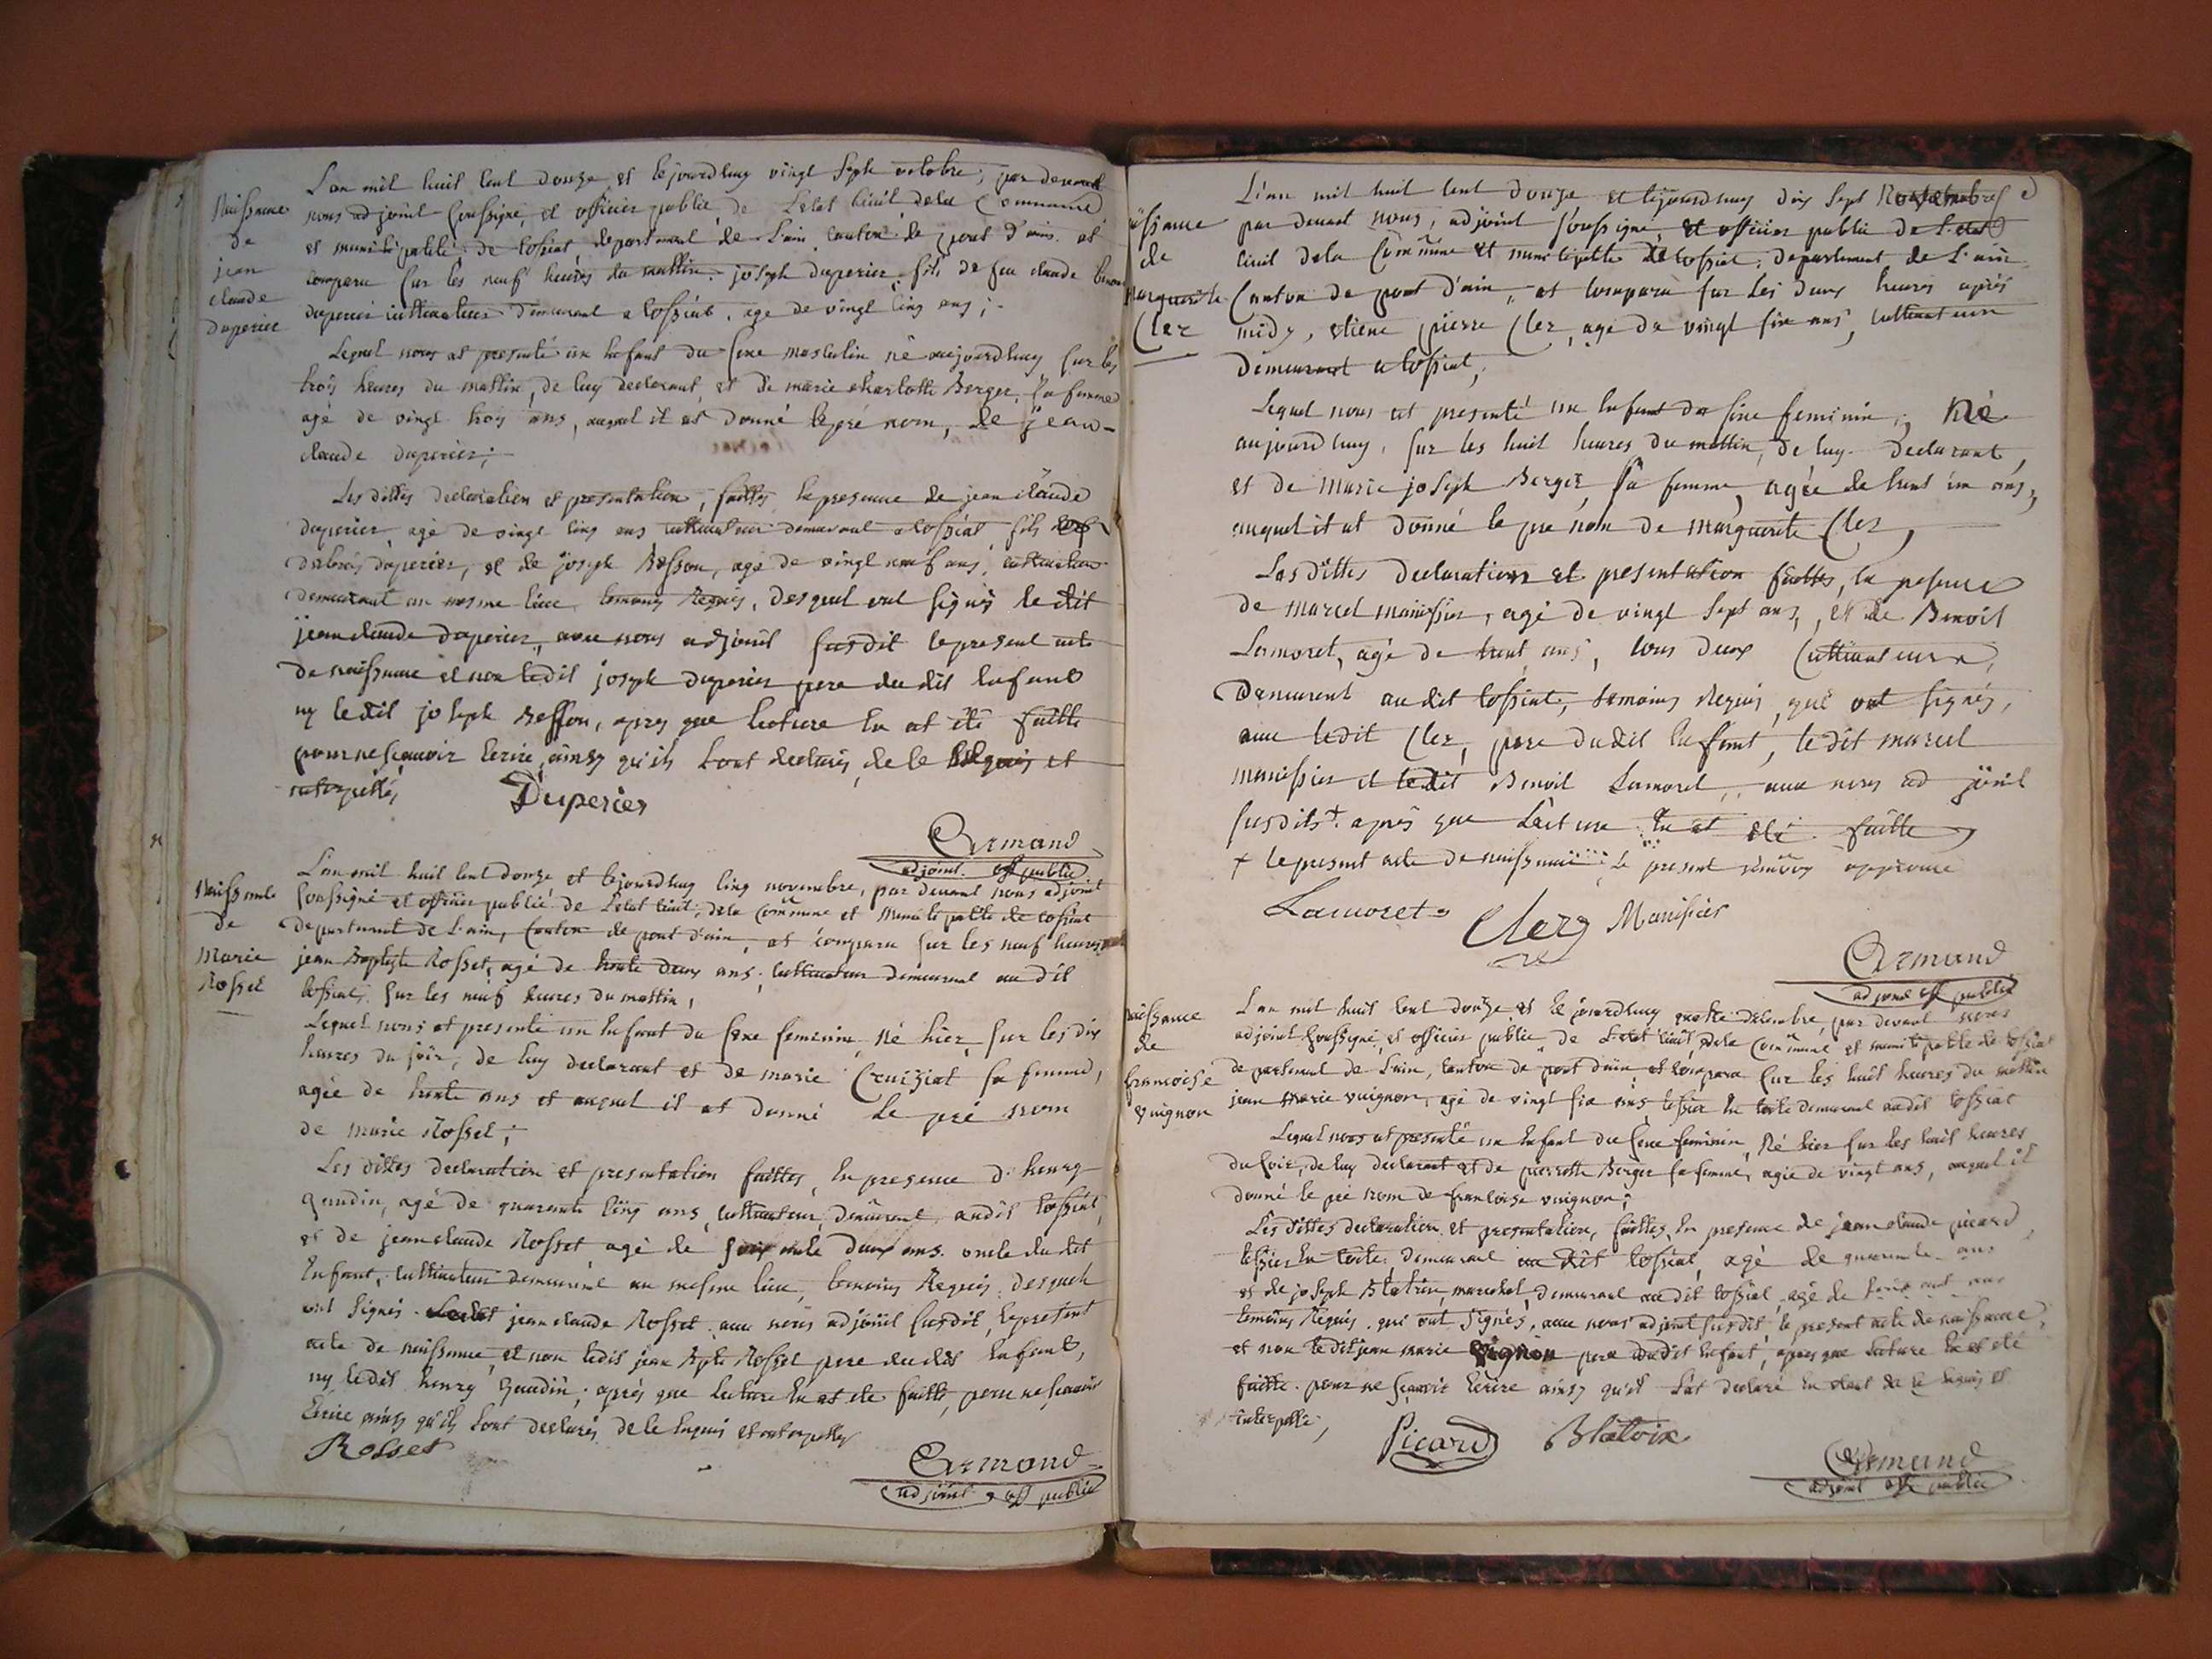 Naissance
de
jean
claude
duperier
L'an mil huit cent douze et le jourdhuy vingt sept octobre, par devant
nous adjoint soussigné, et officier public de L'etat civil de la Commune
et municipalité de tossiat, departement de L'ain canton de pont d'ain. at
comparu sur les neuf heures du mattin. joseph duperier fils de feu claude
duperier cultivateur demeurant a tossiat. age de vingt cinq ans;
Lequel nous at presenté un enfant du sexe masculin né aujourdhuy sur les
trois heures du mattin, de luy declarant, et de marie charlotte Berger, sa femme
agé de vingt trois ans, auquel il at donné le pré nom, de jean-
claude duperier;
Les dittes declaration et presentation, faittes en presence de jean claude
duperier, agé de vingt cinq ans cultivateur demeurant a tossiat fils
duperier, et de joseph Besson, agé de vingt neuf ans, cultivateur
demeurant au mesme lieu temoins Requis, desquel ont signés le dit
jean claude duperier, avec nous adjoint susdit le present acte
de naissance et non ledit joseph duperier pere du dit enfant
ny ledit joseph Besson, apres que lecture en at été faitte
pour ne sçavoir Ecrire, ainsy qu'ils sont declarés, de le Requis et
interpellés
Duperier
Armand
adjoint. off public
Naissance
de
Marie
Rosset
L'an mil huit cent douze et le jourdhuy cinq novembre, par devant nous adjoint
soussigné et officier public de L'etat civil, de la commune et municipalité de tossiat
departement de L'ain, Canton de pont d'ain, at comparu sur les neuf heures
jean Baptiste Rosset, agé de trente deux ans, cultivateur demeurant au dit
tossiat, sur les neuf heures du mattin,
Lequel nous at presenté un enfant du sexe feminin, Né hier, sur les dix
heures du soir, de luy declarant et de marie Cruiziat sa femme,
agée de trente ans et auquel il at donné le pré nom
de marie Rosset;
Les dittes declaration et presentation faittes, en presence d. henry
gaudin, agé de quarante cinq ans, cultivateur, demeurant audit tossiat,
et de jean claude Rosset agé de soixante deux ans. oncle du dit
Enfant, cultivateur demeurant au mesme lieu, temoins Requis, desquels
ont signés. Ledit jean claude Rosset avec nous adjoint susdit, le present
acte de naissance, et non ledis jean Bpte Rosset pere dudit Enfant,
ny ledit henry gaudin, aprés que lecture en at eté faitte, pour ne sçavoir
Ecrire ainsy qu'ils sont declarés de le Requis et interpellés
Rosset
Armand
adjoint off public
de
Marguerite
Clez
L'an mil huit cent douze et le jourdhuy dix sept Novembre
par devant nous, adjoint soussigné, et officier public de l'etat
civil de la Commune et municipalité de tossiat, departement de L'ain
Canton de pont d'ain, at comparu sur les deux heures aprés
midy, etiene pierre Clez, agé de vingt six ans, cultivateur
demeurant a tossiat,
Lequel nous at presenté un enfant du sexe feminin, né
aujourdhuy, sur les huit heures du mattin, de luy declarant,
et de Marie joseph Berger sa femme, agée de trent un ans,
auquel il at donné le pre nom de Marguerite Clez,
Les dittes declaration et presentation faittes, en presence
de marcel manissier, agé de vingt sept ans, et de Benoit
Lamoret, agé de trent ans, tous deux Cultivateurs,
demeurent au dit tossiat, temoins Requis, qui ont signés,
avec ledit Clez, pere dudit Enfant, ledit marcel
manissier et ledit Benoit Lamoret, avec nous adjoint
susdits + aprés que Lecture en at eté faitte
+ le present acte de naissance le present renvoy approuvé
Lamoret
Clerg Manissier
Armand
adjoint off public
Naissance
de
francoise
vuignon
L'an mil huit cent douze, et le jourdhuy quattre decembre, par devant nous
adjoint soussigné, et officier public de L'etat civil, de la Commune et municipalité de tossiat
departement de L'ain, canton de pont d'ain, at comparu sur les huit heures du mattin
jean Marie vuignon, agé de vingt six ans, tessier en toile demeurant audit tossiat
Lequel nous at presenté un Enfant du sexe feminin, Né hier sur les huit heures
du soir, de luy declarant et de pierrette Berger sa femme, agée de vingt ans, auquel il
donné le pré nom de francoise vuignon;
Les dittes declaration et presentation, faittes, en presence de jean claude picard
tessier en toile, demeurant au dit tossiat, agé de quarente ans
et de joseph Blatrix, marechal, demeurant audit tossiat, agé de
temoins Requis, qui ont signés, avec nous adjoint susdit le present acte de naissance,
et non le dit jean marie vignon pere dudit Enfant, apres que lecture en at eté
faitte. pour ne sçavoir Ecrire ainsy qu'il s'at declaré en etant de le Requis et
interpellé,
Picard
Blatrix
Armand
adjoint off public